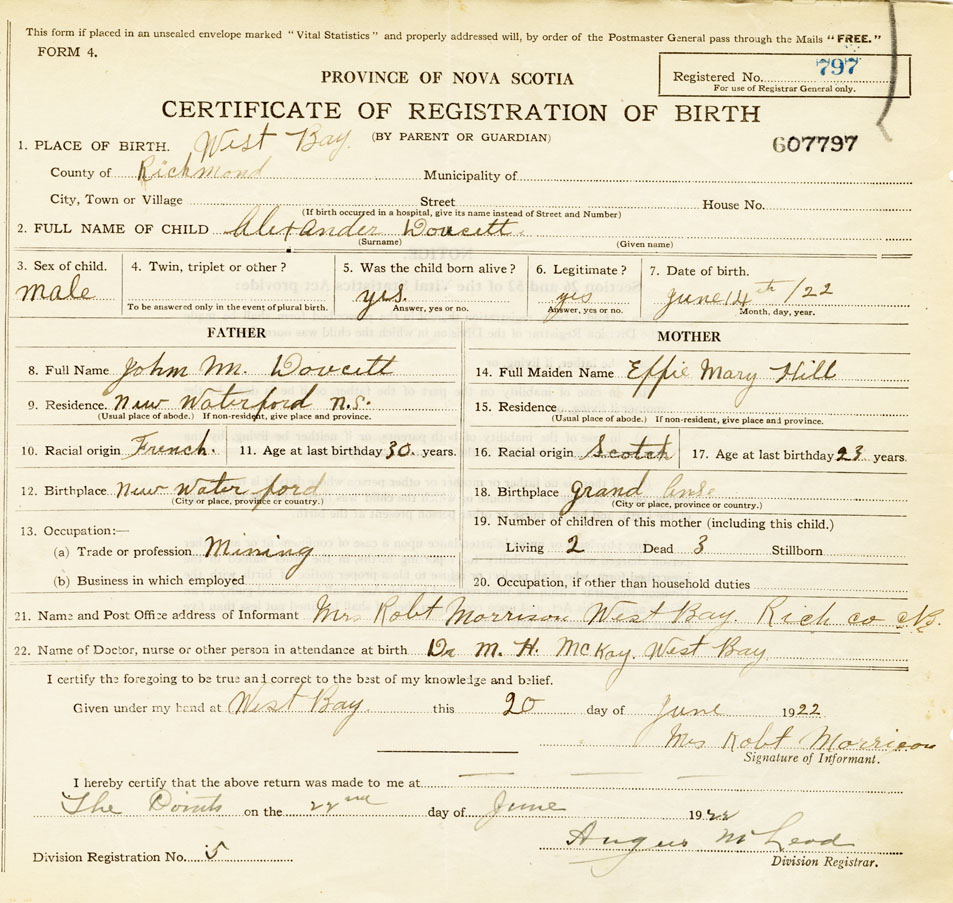 This form if placed in an unsealed envelope marked "Vital Statistics" and properly addressed will, by order of the Postmaster General pass through the Mails "FREE."
FORM 4.
PROVINCE OF NOVA SCOTIA
Registered No. 797
For use of Registrar General only.
CERTIFICATE OF REGISTRATION OF BIRTH
(BY PARENT OR GUARDIAN)
607797
1. PLACE OF BIRTH. West Bay.
County of Richmond Municipality of
City, Town or Village Street House No.
(If birth occurred in a hospital, give its name instead of Street and Number)
2. FULL NAME OF CHILD Alexander Doucett.
(Surname) (Given name)
3. Sex of child. male
4. Twin, triplet or other?
To be answered only in the event of plural birth.
5. Was the child born alive? yes.
Answer, yes or no.
6. Legitimate? yes
Answer, yes or no.
7. Date of birth. June 14th /22
Month, day, year.
FATHER
8. Full Name John M. Doucett
9. Residence. New Waterford N.S.
(Usual place of abode.) If non-resident, give place and province.
10. Racial origin French. 11. Age at last birthday 30. years.
12. Birthplace New Waterford
(City or place, province or country.)
13. Occupation:—
(a) Trade or profession Mining
(b) Business in which employed
MOTHER
14. Full Maiden Name Effie Mary Hill
15. Residence
(Usual place of abode.) If non-resident, give place and province.
16. Racial origin Scotch 17. Age at last birthday 23 years.
18. Birthplace Grand Anse
(City or place, province or country.)
19. Number of children of this mother (including this child.)
Living 2 Dead 3 Stillborn
20. Occupation, if other than household duties
21. Name and Post Office address of Informant Mrs Robt Morrison West Bay. Rich co CB.
22. Name of Doctor, nurse or other person in attendance at birth Dr M. H. McKay. West Bay
I certify the foregoing to be true and correct to the best of my knowledge and belief.
Given under my hand at West Bay. this 20 day of June 1922
Mrs Robt Morrison
Signature of Informant.
I hereby certify that the above return was made to me at
The Points on the 22nd day of June 1922
Angus McLeod
Division Registration No. 5
Division Registrar.